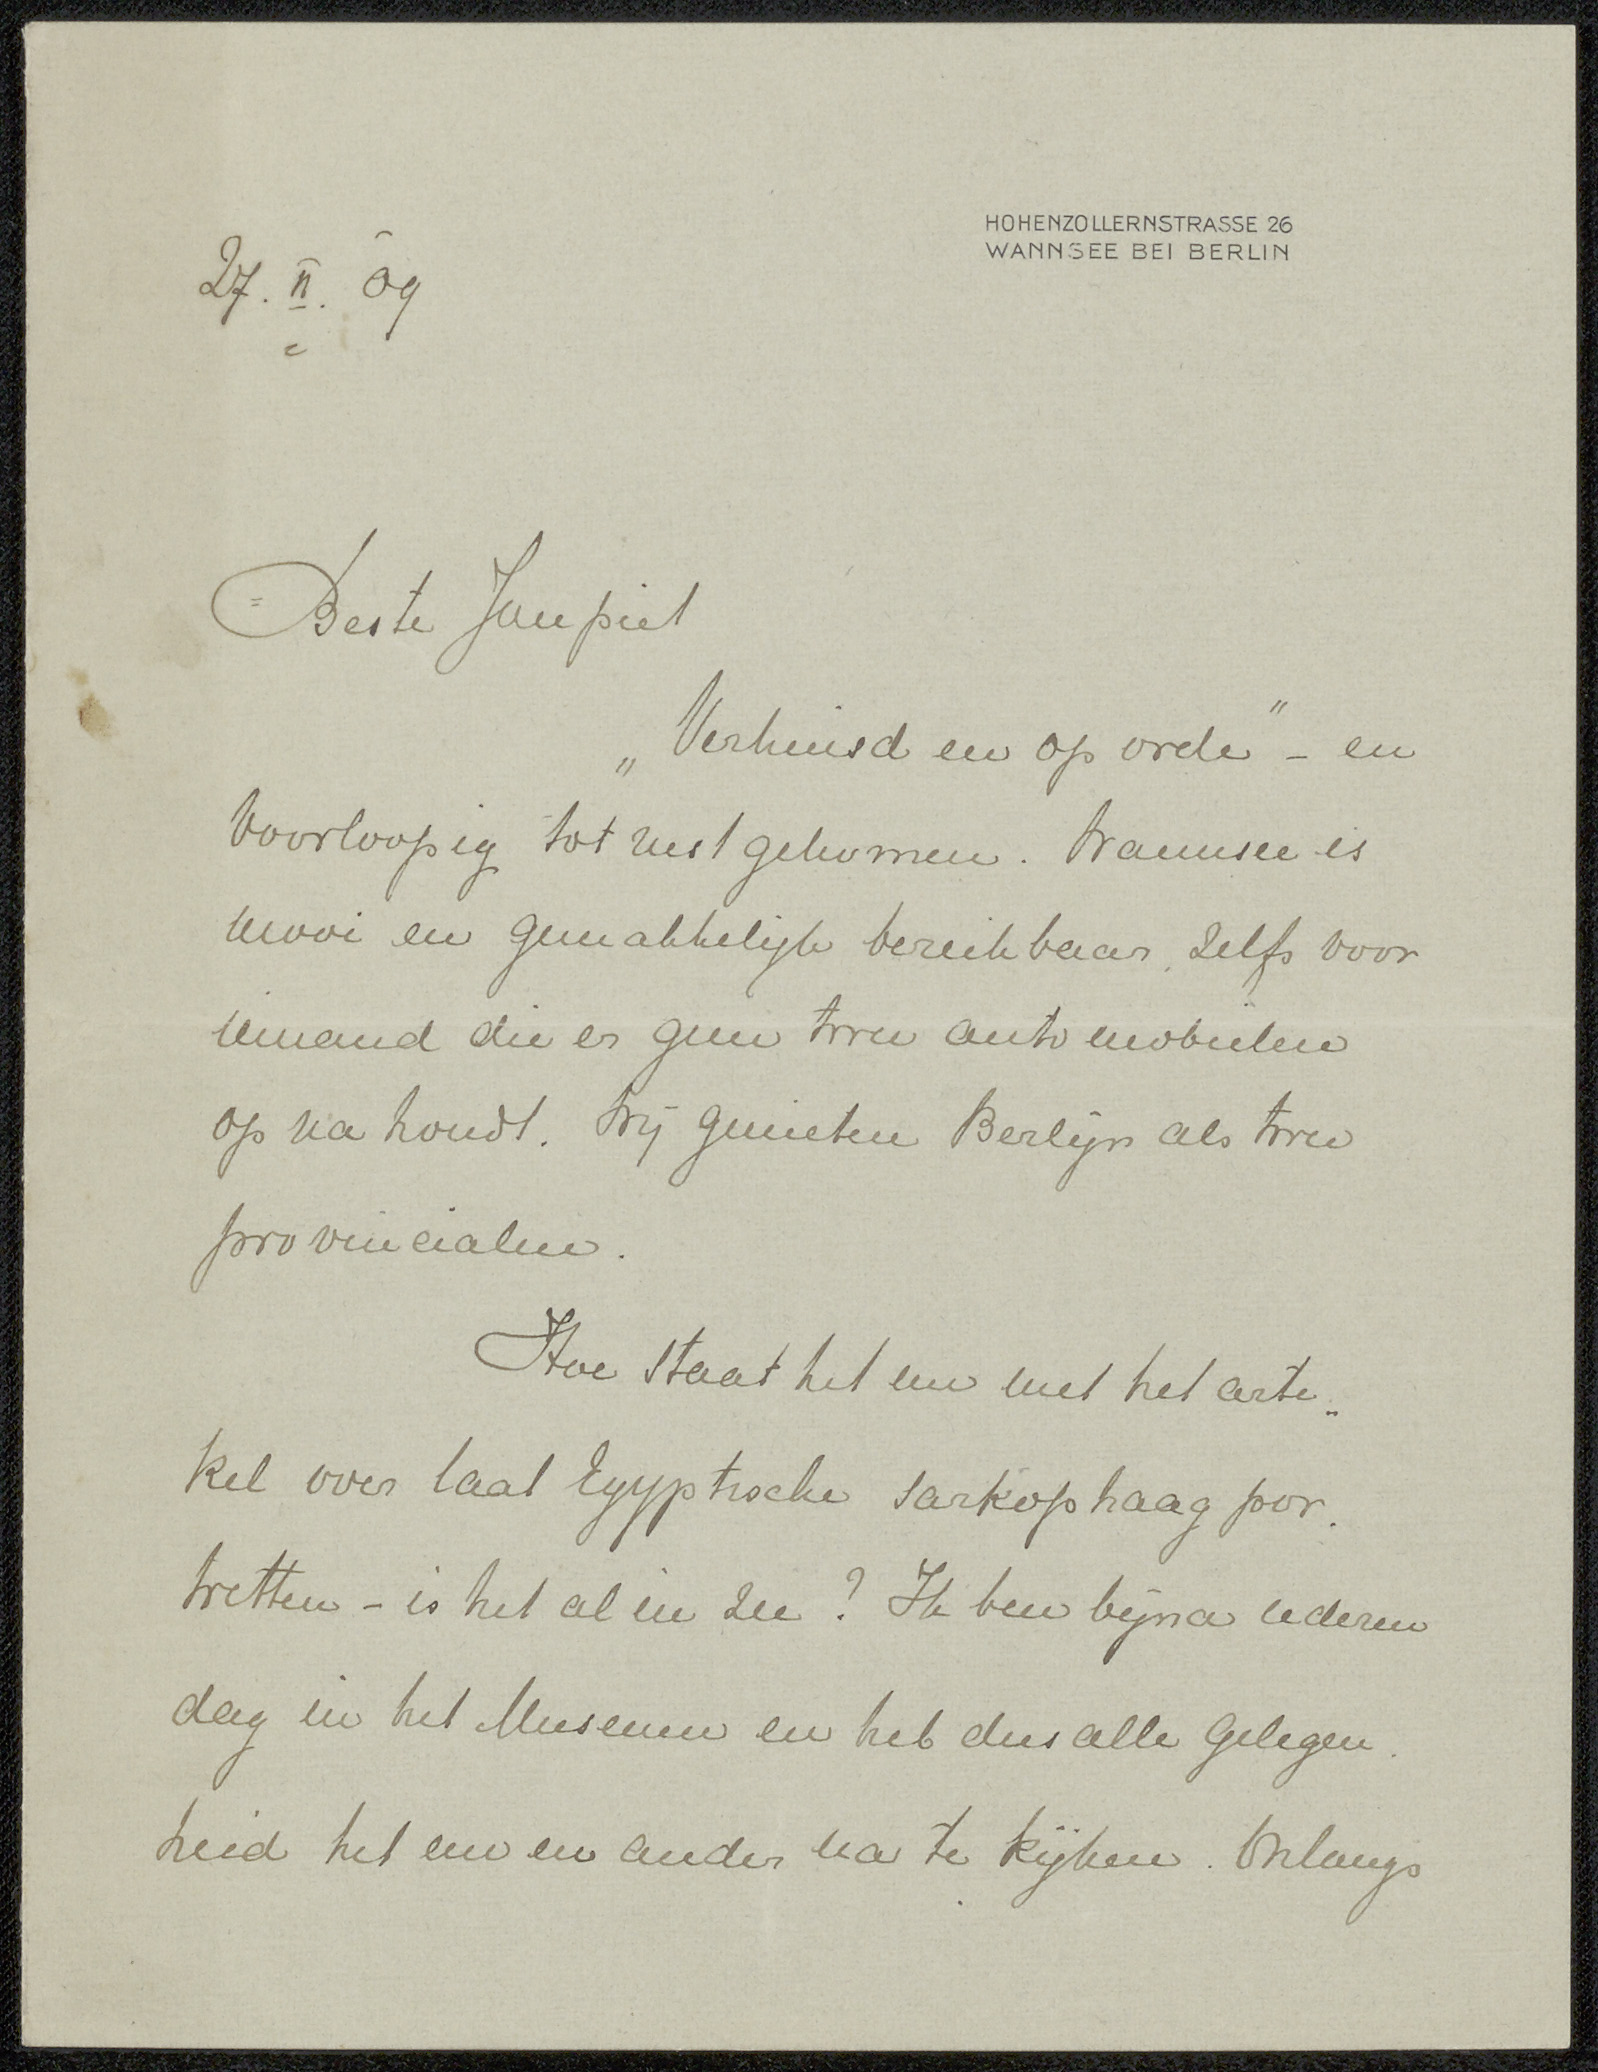 HOHENZOLLERNSTRASSE 26
WANNSEE BEI BERLIN
27. II. 09
Beste Janpiet
„Verhuisd en op orde" - en
voorloopig tot rust gekomen. Wannsee is
mooi en gemakkelijk bereikbaar, zelfs voor
iemand die er geen twee automobielen
op na houdt. Wij genieten Berlijn als twee
provincialen.
Hoe staat het nu met het arti-
kel over laat Egyptische sarkophaag por-
tretten - is het al in zee? Ik ben bijna iederen
dag in het Museum en heb dus alle gelegen-
heid het een en ander na te kijken. Onlangs